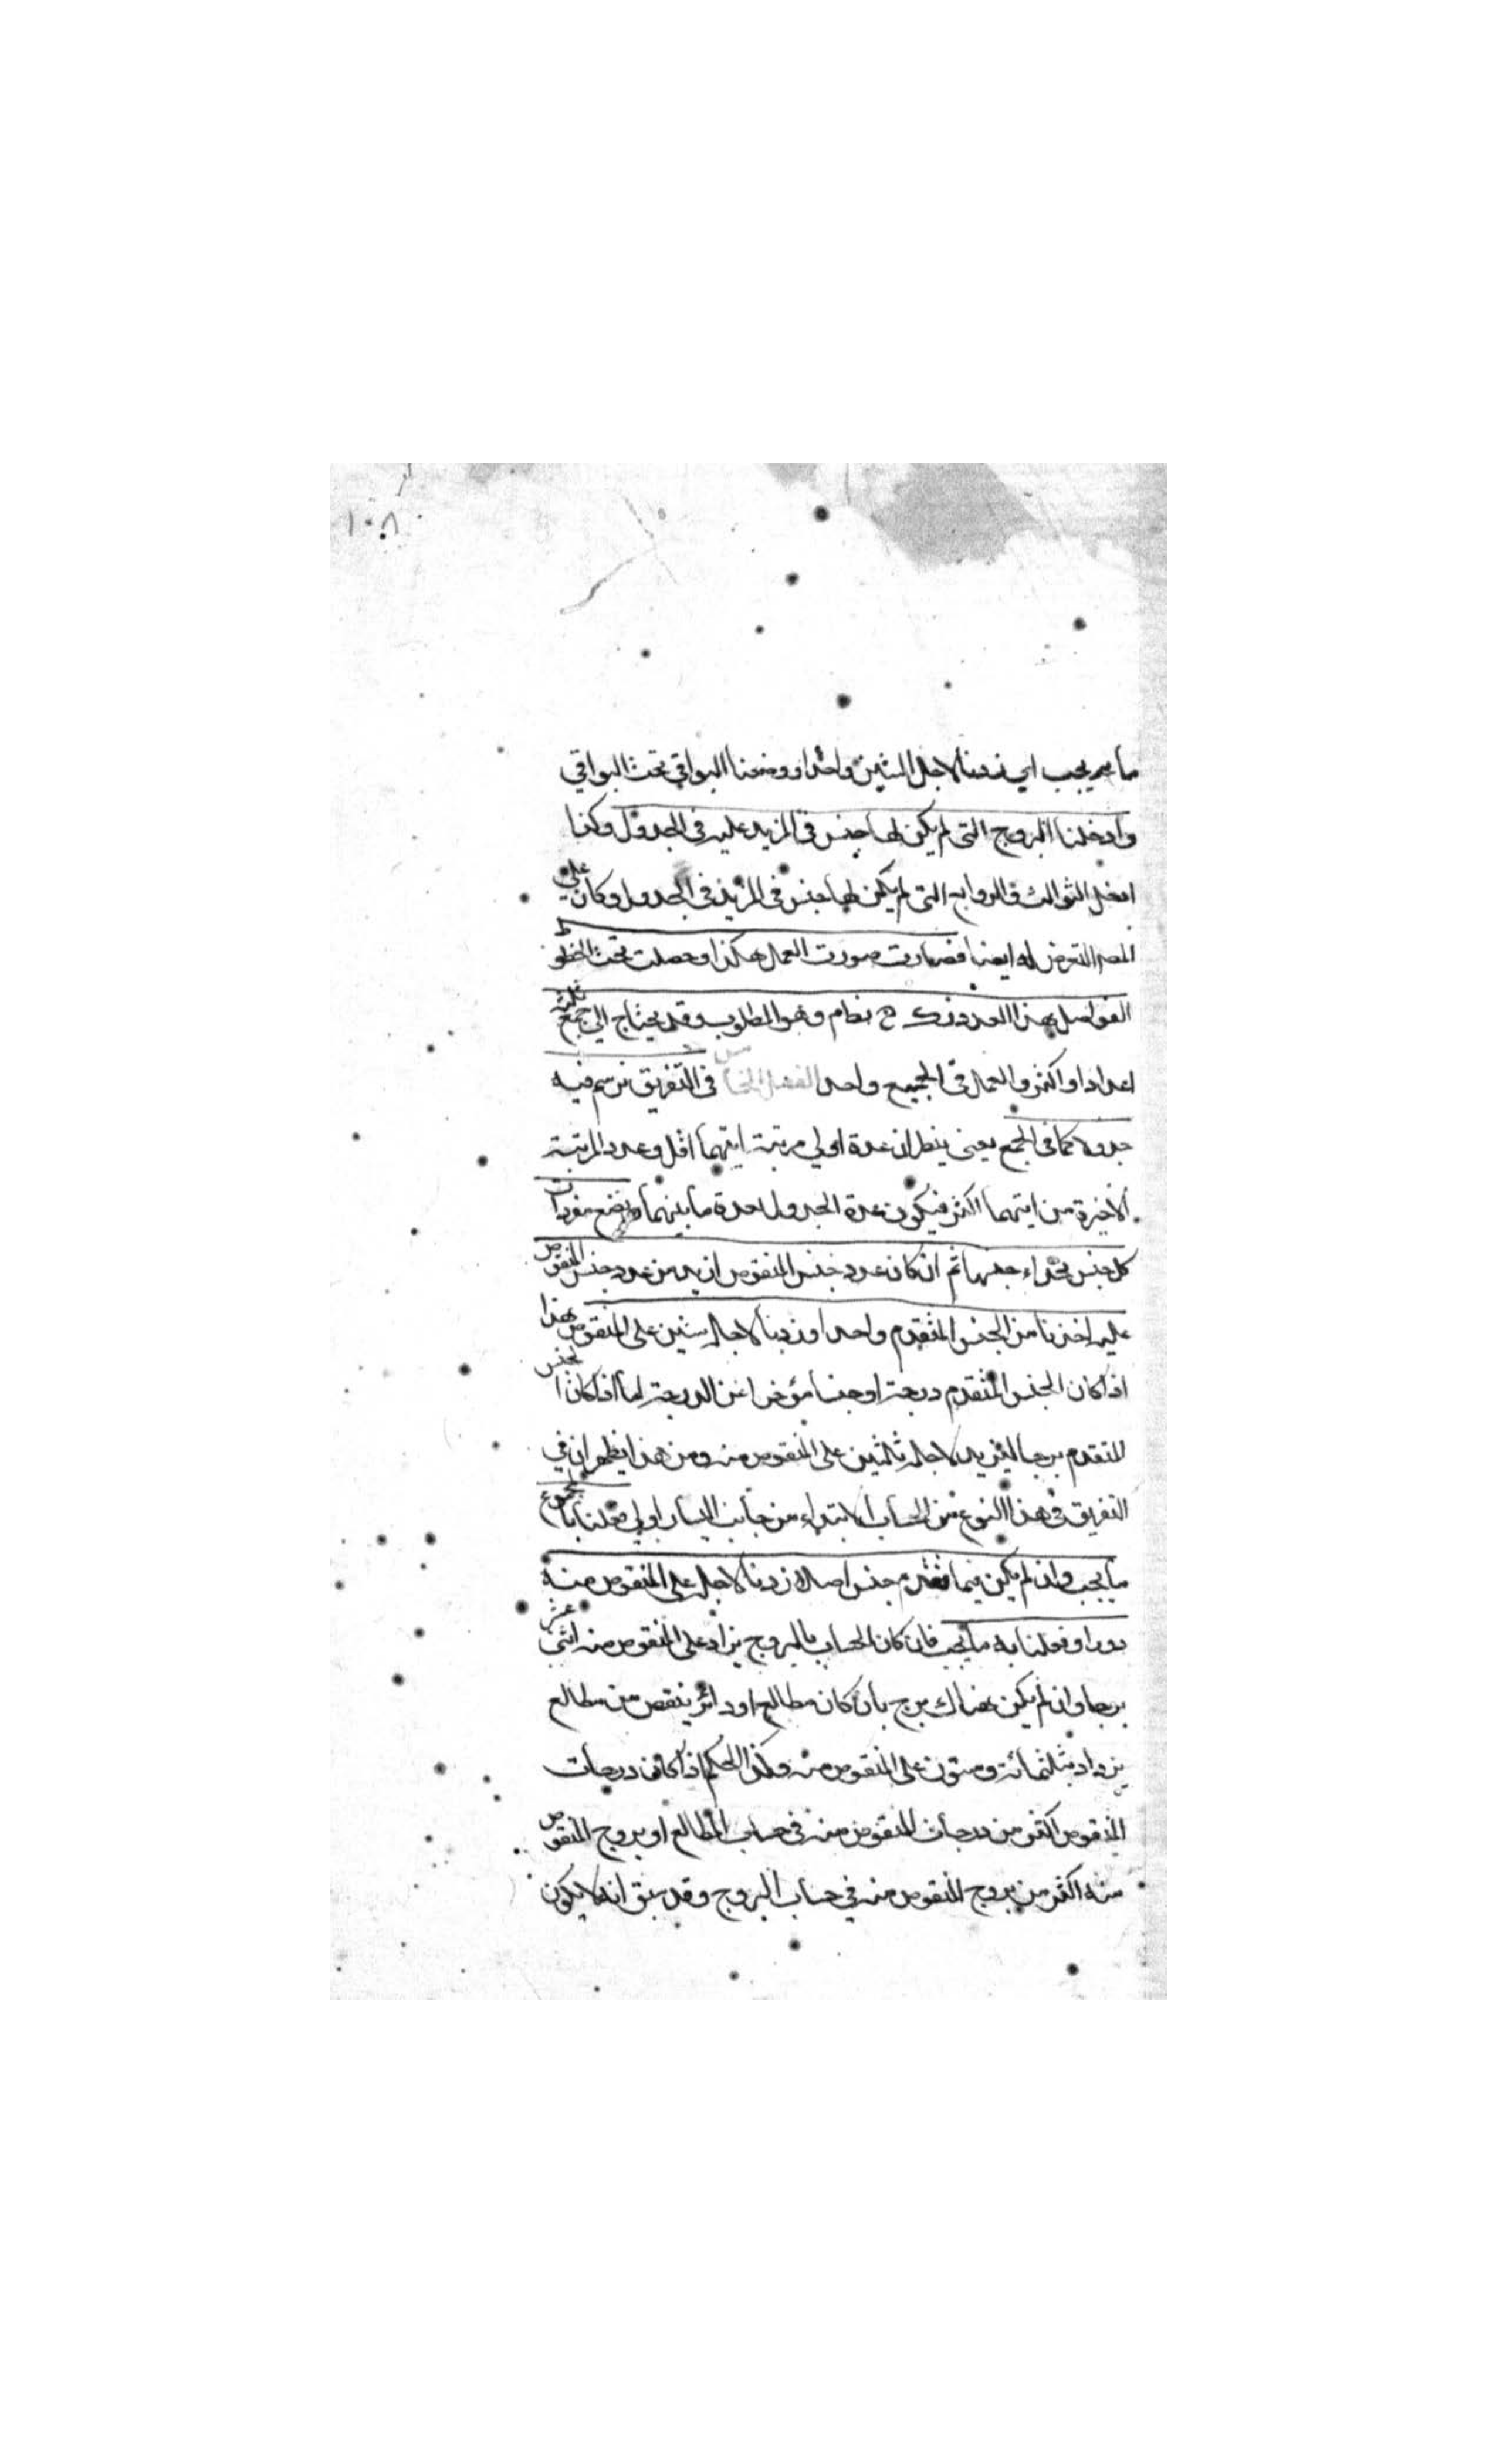 ١٠٨
ما يجب اي زدنا لاجل الستين واحدا ووضعنا البواقي تحت البواقي
وادخلنا البروج التى لم يكن لها جنس فى المزيد عليه فى الجدول وكذا
ادخل الثوالث والروابع التى لم يكن لها جنس فى المزيد فى الجدول وكان على
المصر التعرض له ايضا فصارت صورت العمل هكذا وحصلت تحت الخطو ط
الفواصل هذا العدد وهو المطلوب وقد يحتاج الى جمع ثلثة
اعداد او اكثر والعمل فى الجميع واحد الفصل الخامس فى التفريق نرسم فيه
جدولا كما فى الجمع يعنى ينظر ان عدة اولي مرتبة ايتهما اقل وعدد المرتبة
الاخيرة من ايتهما اكثر فيكون عدة الجدول بعدة ما بينهما ونضع مفردات
كل جنس بحذاء جنسها ثم ان كان عدد جنس المنقوص ازيد من عدد جنس المنقوص
عليه اخذنا من الجنس المتقدم واحدا وزدنا لاجله ستين على المنقوص هذا
اذا كان الجنس المتقدم درجة او جنسا مؤخرا عن الدرجة اما اذا كان الجنس
المتقدم برجا فيزيد لاجله ثلثين على المنقوص منه ومن هذا يظهر ان في
التفريق فى هذا النوع من الحساب الابتداء من جانب اليسار اولي فعلنا بالمجموع
ما يجب وان لم يكن فيما تقدم جنس اصلا زدنا لاجله على المنقوص منه
دورا وفعلنا به ما يجب فان كان الحساب بالبروج يزاد على المنقوص منه اثنى عشر
برجا وان لم يكن هناك برج بان كان مطالع او دائر ينقص من مطالع
يزداد ثلثمائة وستون على المنقوص منه وكذا الحكم اذا كانت درجات
المنقوص اكثر من درجات المنقوص منه فى حساب المطالع او بروج المنقوص
منه اكثر من بروج المنقوص منه في حساب البروج وقد سبق انه لا يكون